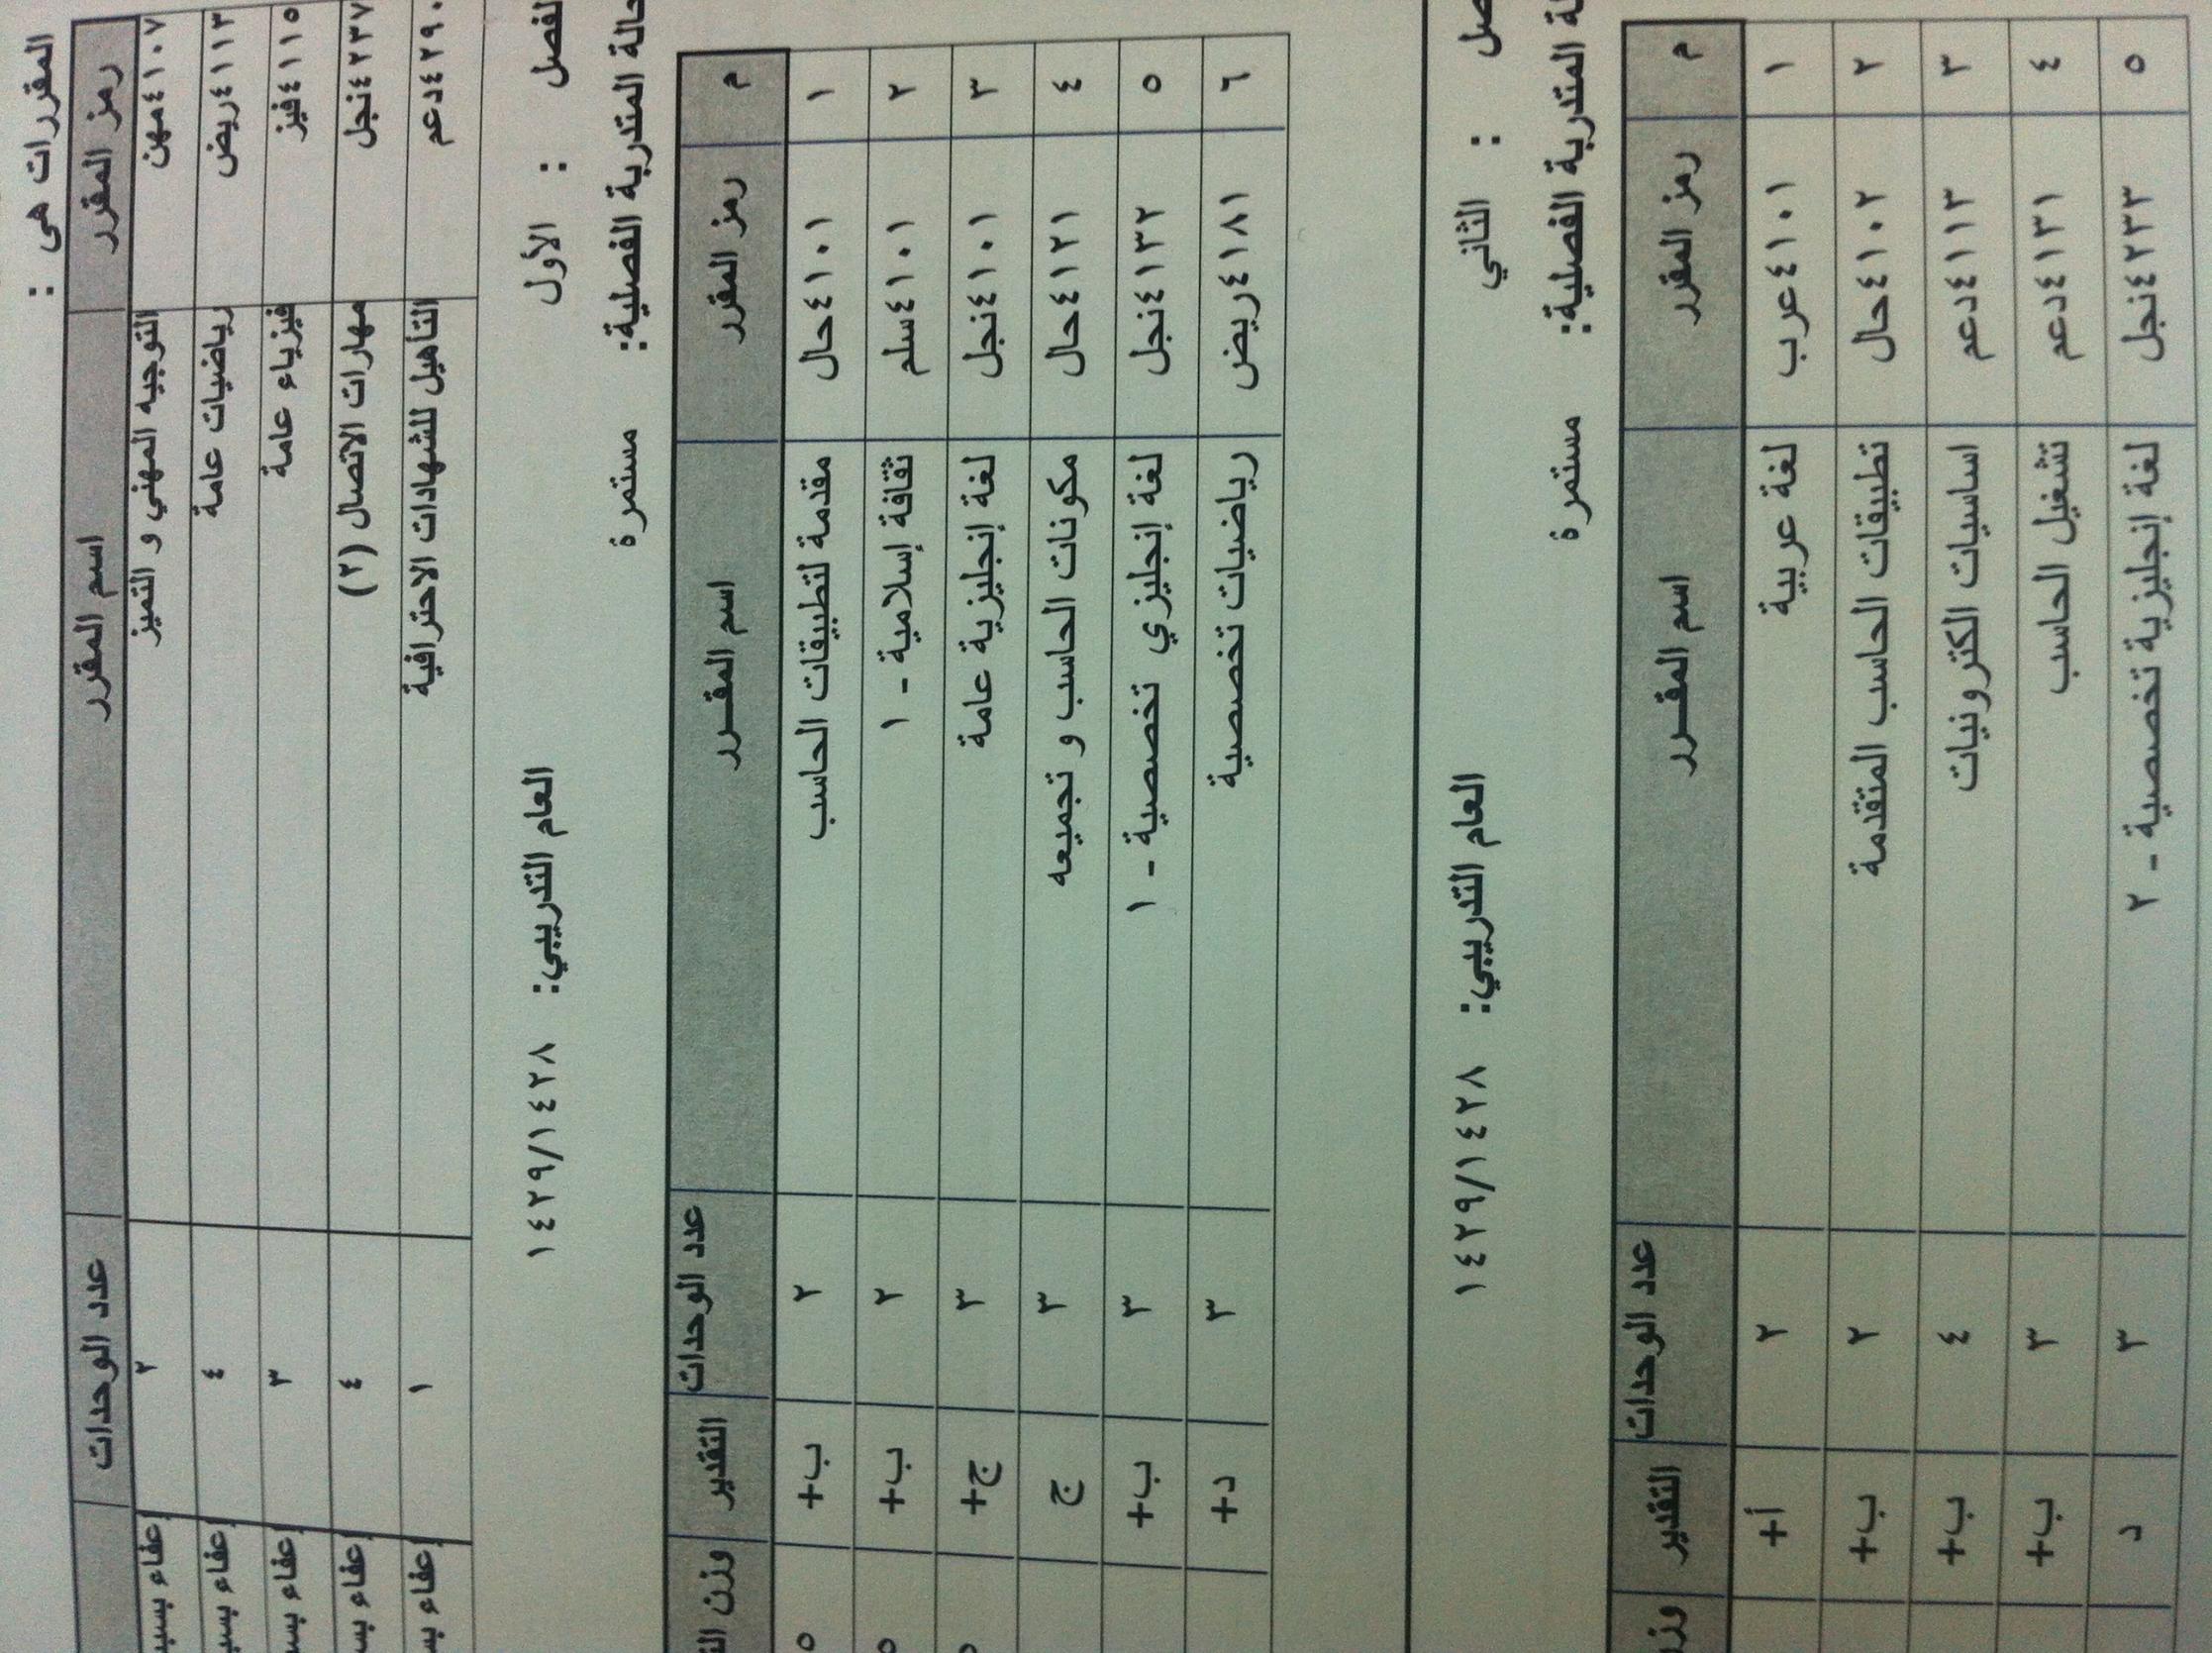 المقررات هي :
رمز المقرر اسم المقرر عدد الوحدات
٤١٠٧مهن التوجيه المهني و التميز ٢ إعفاء
٤١١٣ريض رياضيات عامة ٤ إعفاء
٤١١٥فيز فيزياء عامة ٣ إعفاء
٤٢٣٧نجل مهارات الاتصال (٢) ٤ إعفاء
٤٢٩٠دعم التأهيل للشهادات الاحترافية ١ إعفاء
الفصل : الأول العام التدريبي: ١٤٢٩/١٤٢٨
حالة المتدربة الفصلية: مستمرة
م رمز المقرر اسم المقرر عدد الوحدات التقدير وزن
١ ٤١٠١حال مقدمة لتطبيقات الحاسب ٢ ب+
٢ ٤١٠١سلم ثقافة إسلامية - ١ ٢ ب+
٣ ٤١٠١نجل لغة إنجليزية عامة ٣ ج+
٤ ٤١٢١حال مكونات الحاسب و تجميعه ٣ ج
٥ ٤١٣٢نجل لغة إنجليزي تخصصية - ١ ٣ ب+
٦ ٤١٨١ريض رياضيات تخصصية ٣ د+
صل : الثاني العام التدريبي: ١٤٢٩/١٤٢٨
لة المتدربة الفصلية: مستمرة
م رمز المقرر اسم المقرر عدد الوحدات التقدير
١ ٤١٠١عرب لغة عربية ٢ أ+
٢ ٤١٠٢حال تطبيقات الحاسب المتقدمة ٢ ب+
٣ ٤١١٣دعم اساسيات الكترونيات ٤ ب+
٤ ٤١٣١دعم تشغيل الحاسب ٣ ب+
٥ ٤٢٣٣نجل لغة إنجليزية تخصصية - ٢ ٣ د